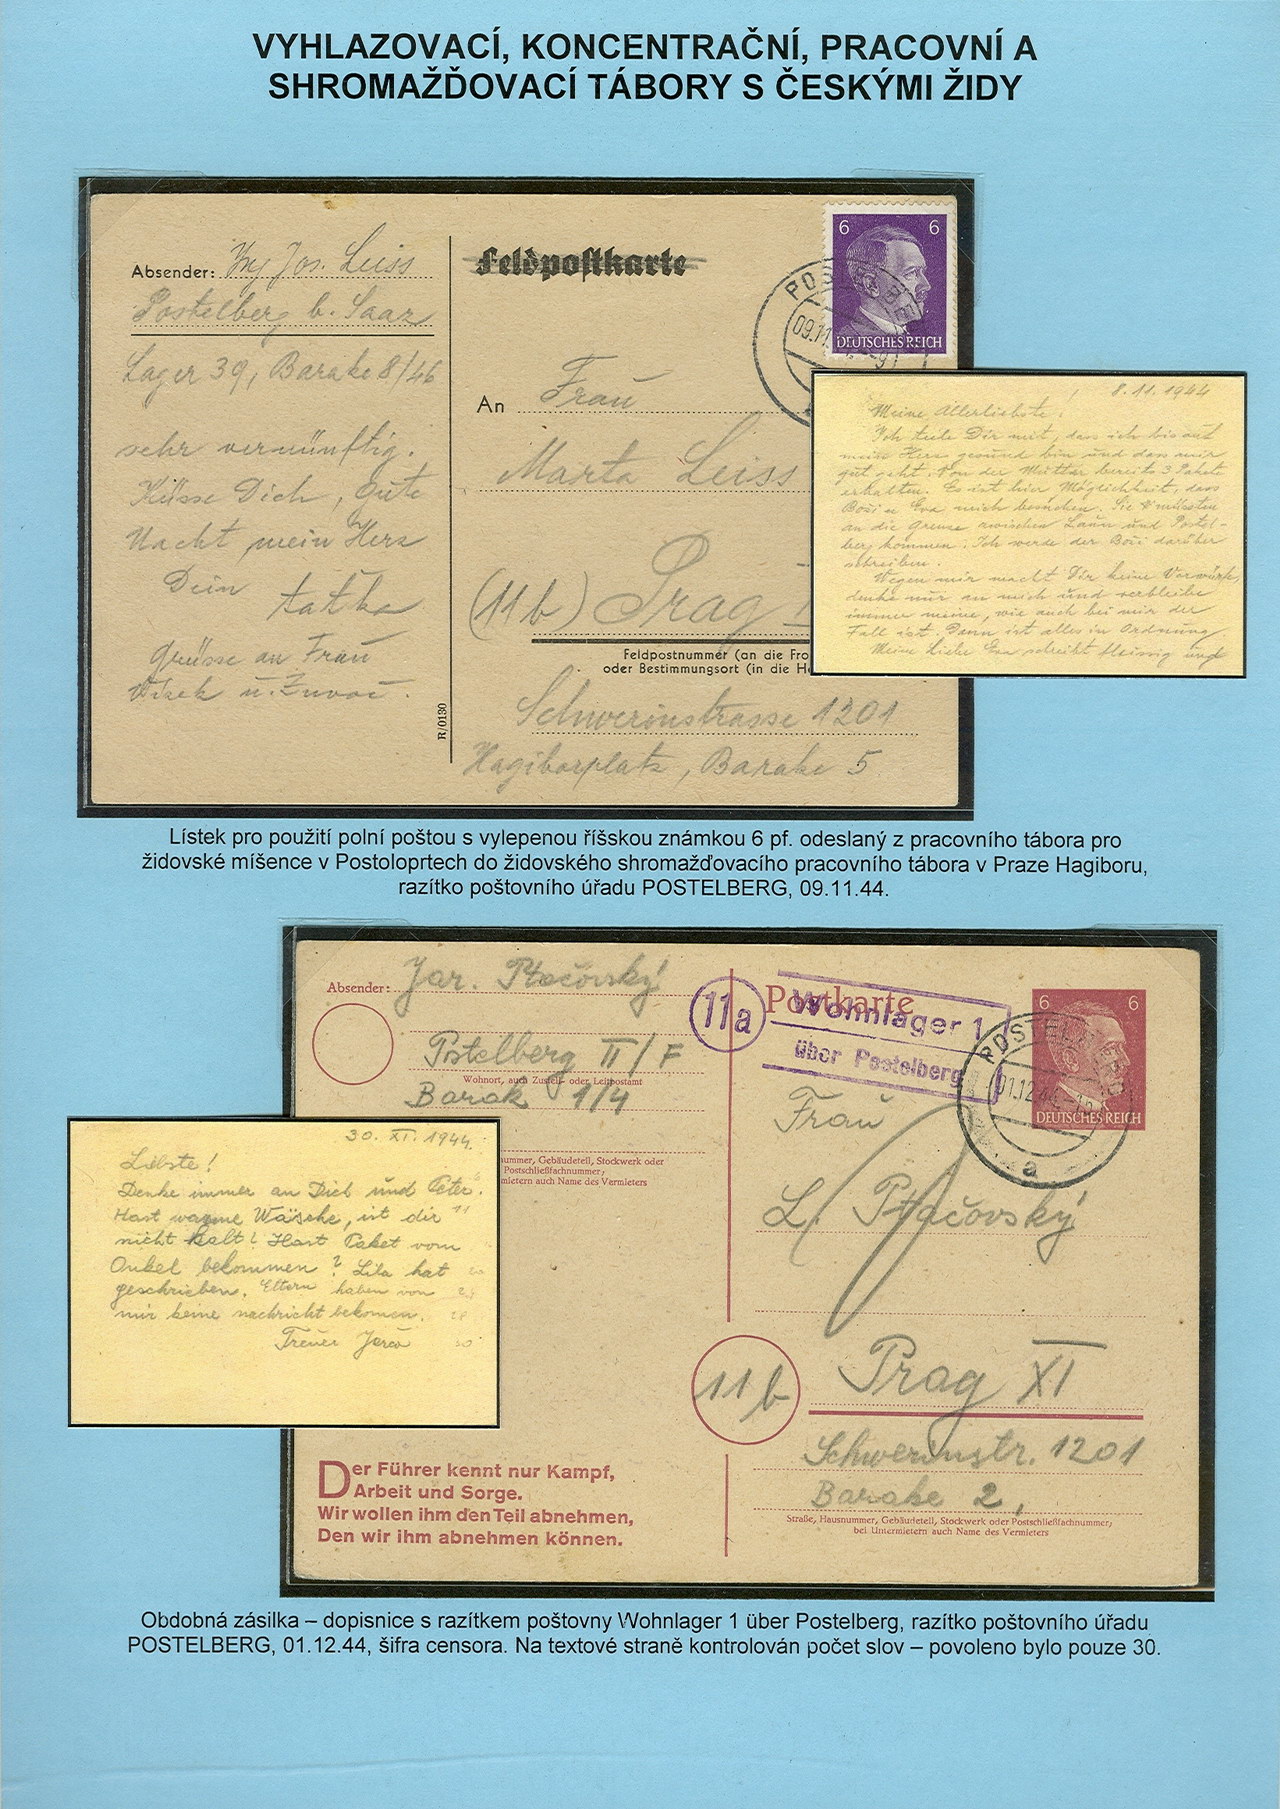 VYHLAZOVACÍ, KONCENTRAČNÍ, PRACOVNÍ A
SHROMAŽĎOVACÍ TÁBORY S ČESKÝMI ŽIDY
Absender: Ing Jos. Leiss
Postelberg b. Saaz
Lager 39, Barake 8/46
sehr vernünftig.
Küsse Dich, gute
Nacht mein Herz
Dein tatka
Grüsse an Frau
Vlzek u. Zuvač.
R/0130
Feldpostkarte
6 6
DEUTSCHES REICH
POSTELBERG
09.11.
An Frau
Marta Leiss
(11b) Prag
Feldpostnummer (an die Fro
oder Bestimmungsort (in die He
Schwerinstrasse 1201
Hagiborplatz, Barake 5
8.11.1944
Meine Allerliebste!
Ich teile Dir mit, das ich bis auf
mein Herz gesund bin und das mir
gut geht. Von der Mutter bereits 3 Pakete
erhalten. Es ist hier Möglichkeit, dass
Boži u Eva mich besuchen. Sie müssten
an die Grenze zwischen Laun und Postel-
berg kommen. Ich werde der Boži darüber
schreiben.
Wegen mir macht Dir keine Vorwürfe,
denke nur an mich und verbleibe
immer meine, wie auch bei mir der
Fall ist. Dann ist alles in Ordnung.
Meine liebe Eva schreibt fleissig und
Lístek pro použití polní poštou s vylepenou říšskou známkou 6 pf. odeslaný z pracovního tábora pro
židovské míšence v Postoloprtech do židovského shromažďovacího pracovního tábora v Praze Hagiboru,
razítko poštovního úřadu POSTELBERG, 09.11.44.
Absender: Jar. Ptačovský
Postelberg II/F
Wohnort, auch Zustell- oder Leitpostamt
Barak 1/4
nummer, Gebäudeteil, Stockwerk oder
Postschließfachnummer;
mietern auch Name des Vermieters
11a
Postkarte
Wohnlager 1
über Postelberg
6 6
DEUTSCHES REICH
POSTELBERG
01.12.44
a
Frau
L. Ptačovský
11b
Prag XI
Schwerinstr. 1201
Barake 2,
Straße, Hausnummer, Gebäudeteil, Stockwerk oder Postschließfachnummer;
bei Untermietern auch Name des Vermieters
30. XI. 1944.
Liebste!
Denke immer an Dich und Peter.
Hast warme Wäsche, ist dir 11
nicht kalt! Hast Paket vom
Onkel bekommen? Lila hat
geschrieben. Eltern haben von
mir keine nachricht bekomen.
Treuer Jara 30
Der Führer kennt nur Kampf,
Arbeit und Sorge.
Wir wollen ihm den Teil abnehmen,
Den wir ihm abnehmen können.
Obdobná zásilka – dopisnice s razítkem poštovny Wohnlager 1 über Postelberg, razítko poštovního úřadu
POSTELBERG, 01.12.44, šifra censora. Na textové straně kontrolován počet slov – povoleno bylo pouze 30.